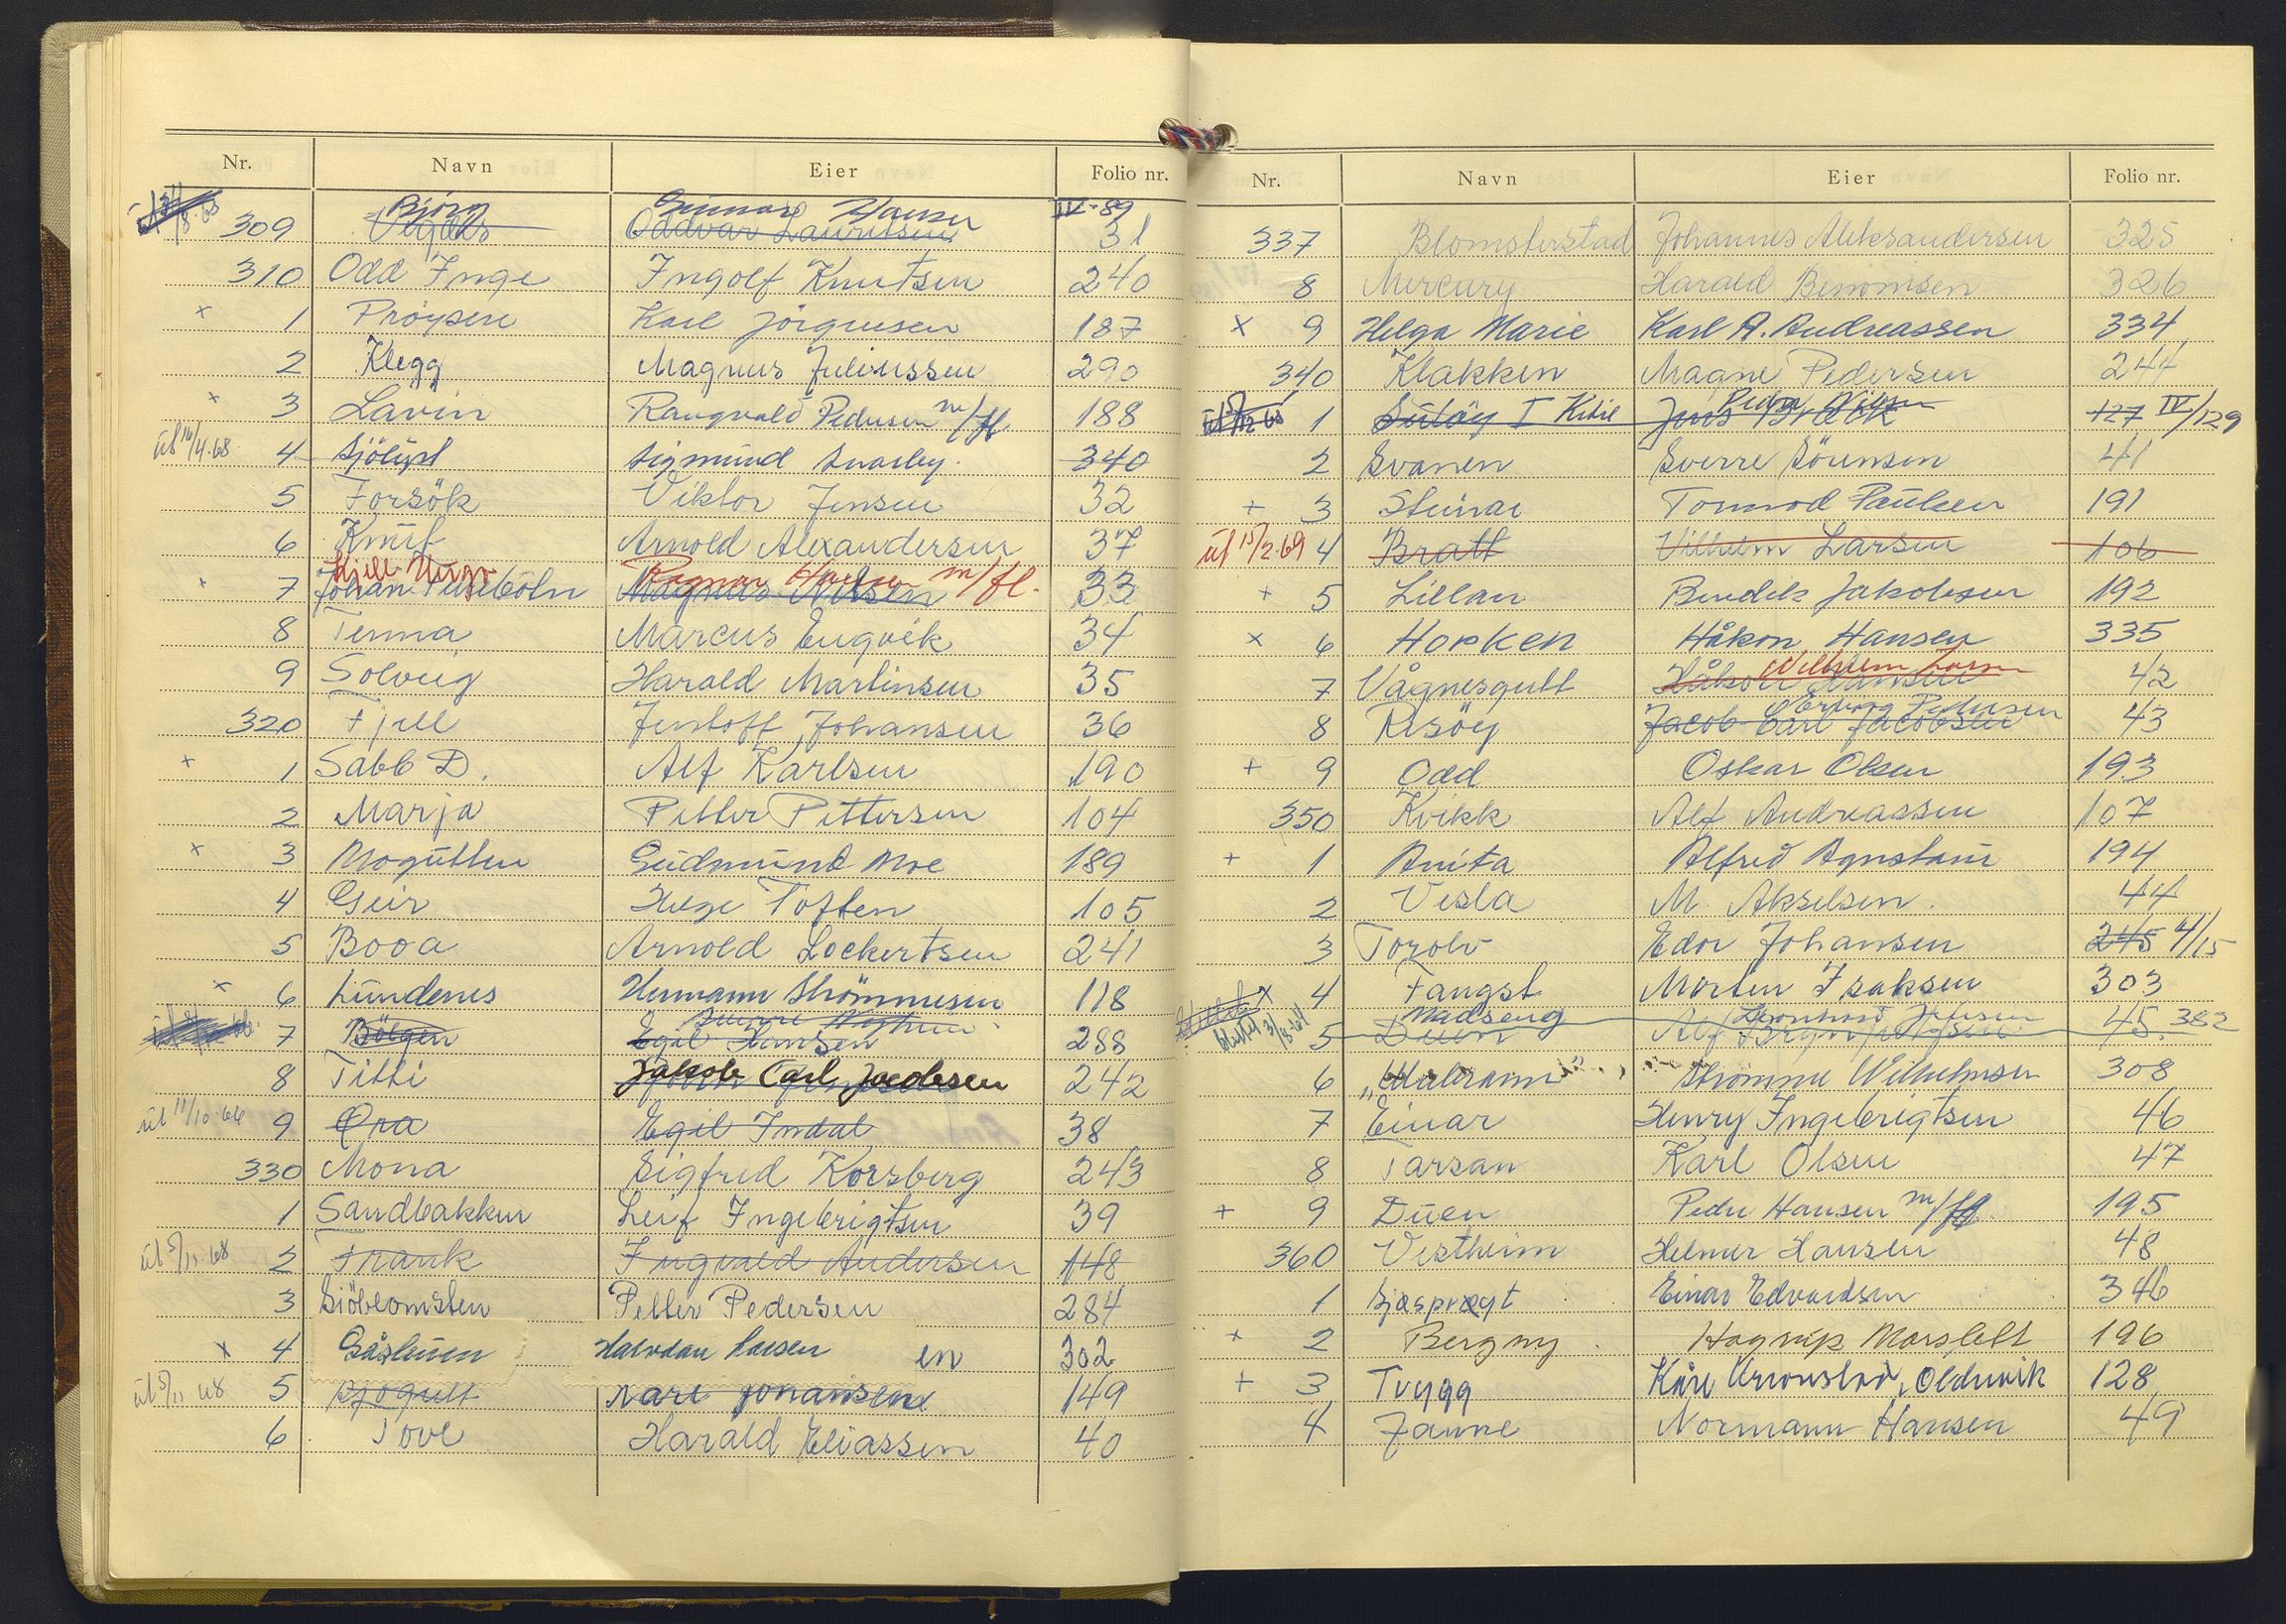 Nr. Navn Eier Folio nr.
Björn Gunnar Hansen IV-89
309 Oddvar Lauritsen 31
310 Odd Inge Ingolf Knutsen 240
x 1 Pröysen Karl Jörgensen 187
2 Klegg Magnus Juliussen 290
x 3 Lavin Rangvald Pedersen m/fl 188
ut 16/4.68 4 Sjölyst Sigmund 340
5 Forsök Viktor Jensen 32
6 Knut Arnold Alexandersen 37
Ragnar Hansen m/fl.
+ 7 Johan Magnus Nilsen 33
8 Tenna Marcus Engvik 34
9 Solveig Harald Martinsen 35
320 Fjell Jentoft Johansen 36
+ 1 Sabb D. Alf Karlsen 190
2 Marja Petter Pettersen 104
x 3 Mogutten Gudmund Moe 189
4 Geir Helge Toften 105
5 Booa Arnold Lockertsen 241
x 6 Lundenes Hermann Strömmesen 118
7 Bölgen Egil Hansen 288
8 Titti Jakob Carl Jacobsen 242
ut 11/10.66 9 Ora Egil Indal 38
330 Mona Sigfred Korsberg 243
1 Sandbakken Leif Ingebrigtsen 39
ut 5/11 68 2 Frank Ingvald Andersen 148
3 Sjöblomsten Petter Pedersen 284
x 4 Gåslunen Halvdan Larsen en 302
ut 5/11 68 5 Sjøgutt Karl Johansen 149
6 Tove Harald Eliassen 40
Nr. Navn Eier Folio nr.
337 Blomsterstad Johannes Aleksandersen 325
8 Mercury Harald Benjominsen 326
x 9 Helga Marie Karl A. Andreassen 334
340 Klakken Magne Pedersen 244
Peder Nilsen
1 I Ketil Jens 127 IV/129
2 Svanen Sverre Sörensen 41
+ 3 Steinar Tormod Paulsen 191
ut 15/2.69 4 Bratt Vilhelm Larsen 106
+ 5 Lillan Bendik Jakobsen 192
x 6 Hopken Håkon Hansen 335
Wilhelm Larsen
7 Vågnesgutt Håkon Hansen 42
Erling Pedersen
8 Risöy Jacob Carl Jacobsen 43
+ 9 Odd Oskar Olsen 193
350 Kvikk Alf Andreassen 107
+ 1 Anita Alfred Agnstam 194
2 Vesla M. Akselsen. 44
3 Torolv Edor Johansen 245 4/15
x 4 Fangst Morten Isaksen 303
Nadseng Leonhard Jensen
5 Duen Alf Brynjulfsen 45. 382
6 Strömme Wilhelmsen 308
7 Einar Henry Ingebrigtsen 46
8 Tarsan Karl Olsen 47
+ 9 Duen Peder Hansen m/fl 195
360 Vestheim Helmer Hansen 48
1 Sjøsprøyt Einar Edvardsen 346
+ 2 Bergny Hagrup Marsfelt 196
+ 3 Trygg Kåre Kronstad, Oldervik 128
4 Janne Normann Hansen 49